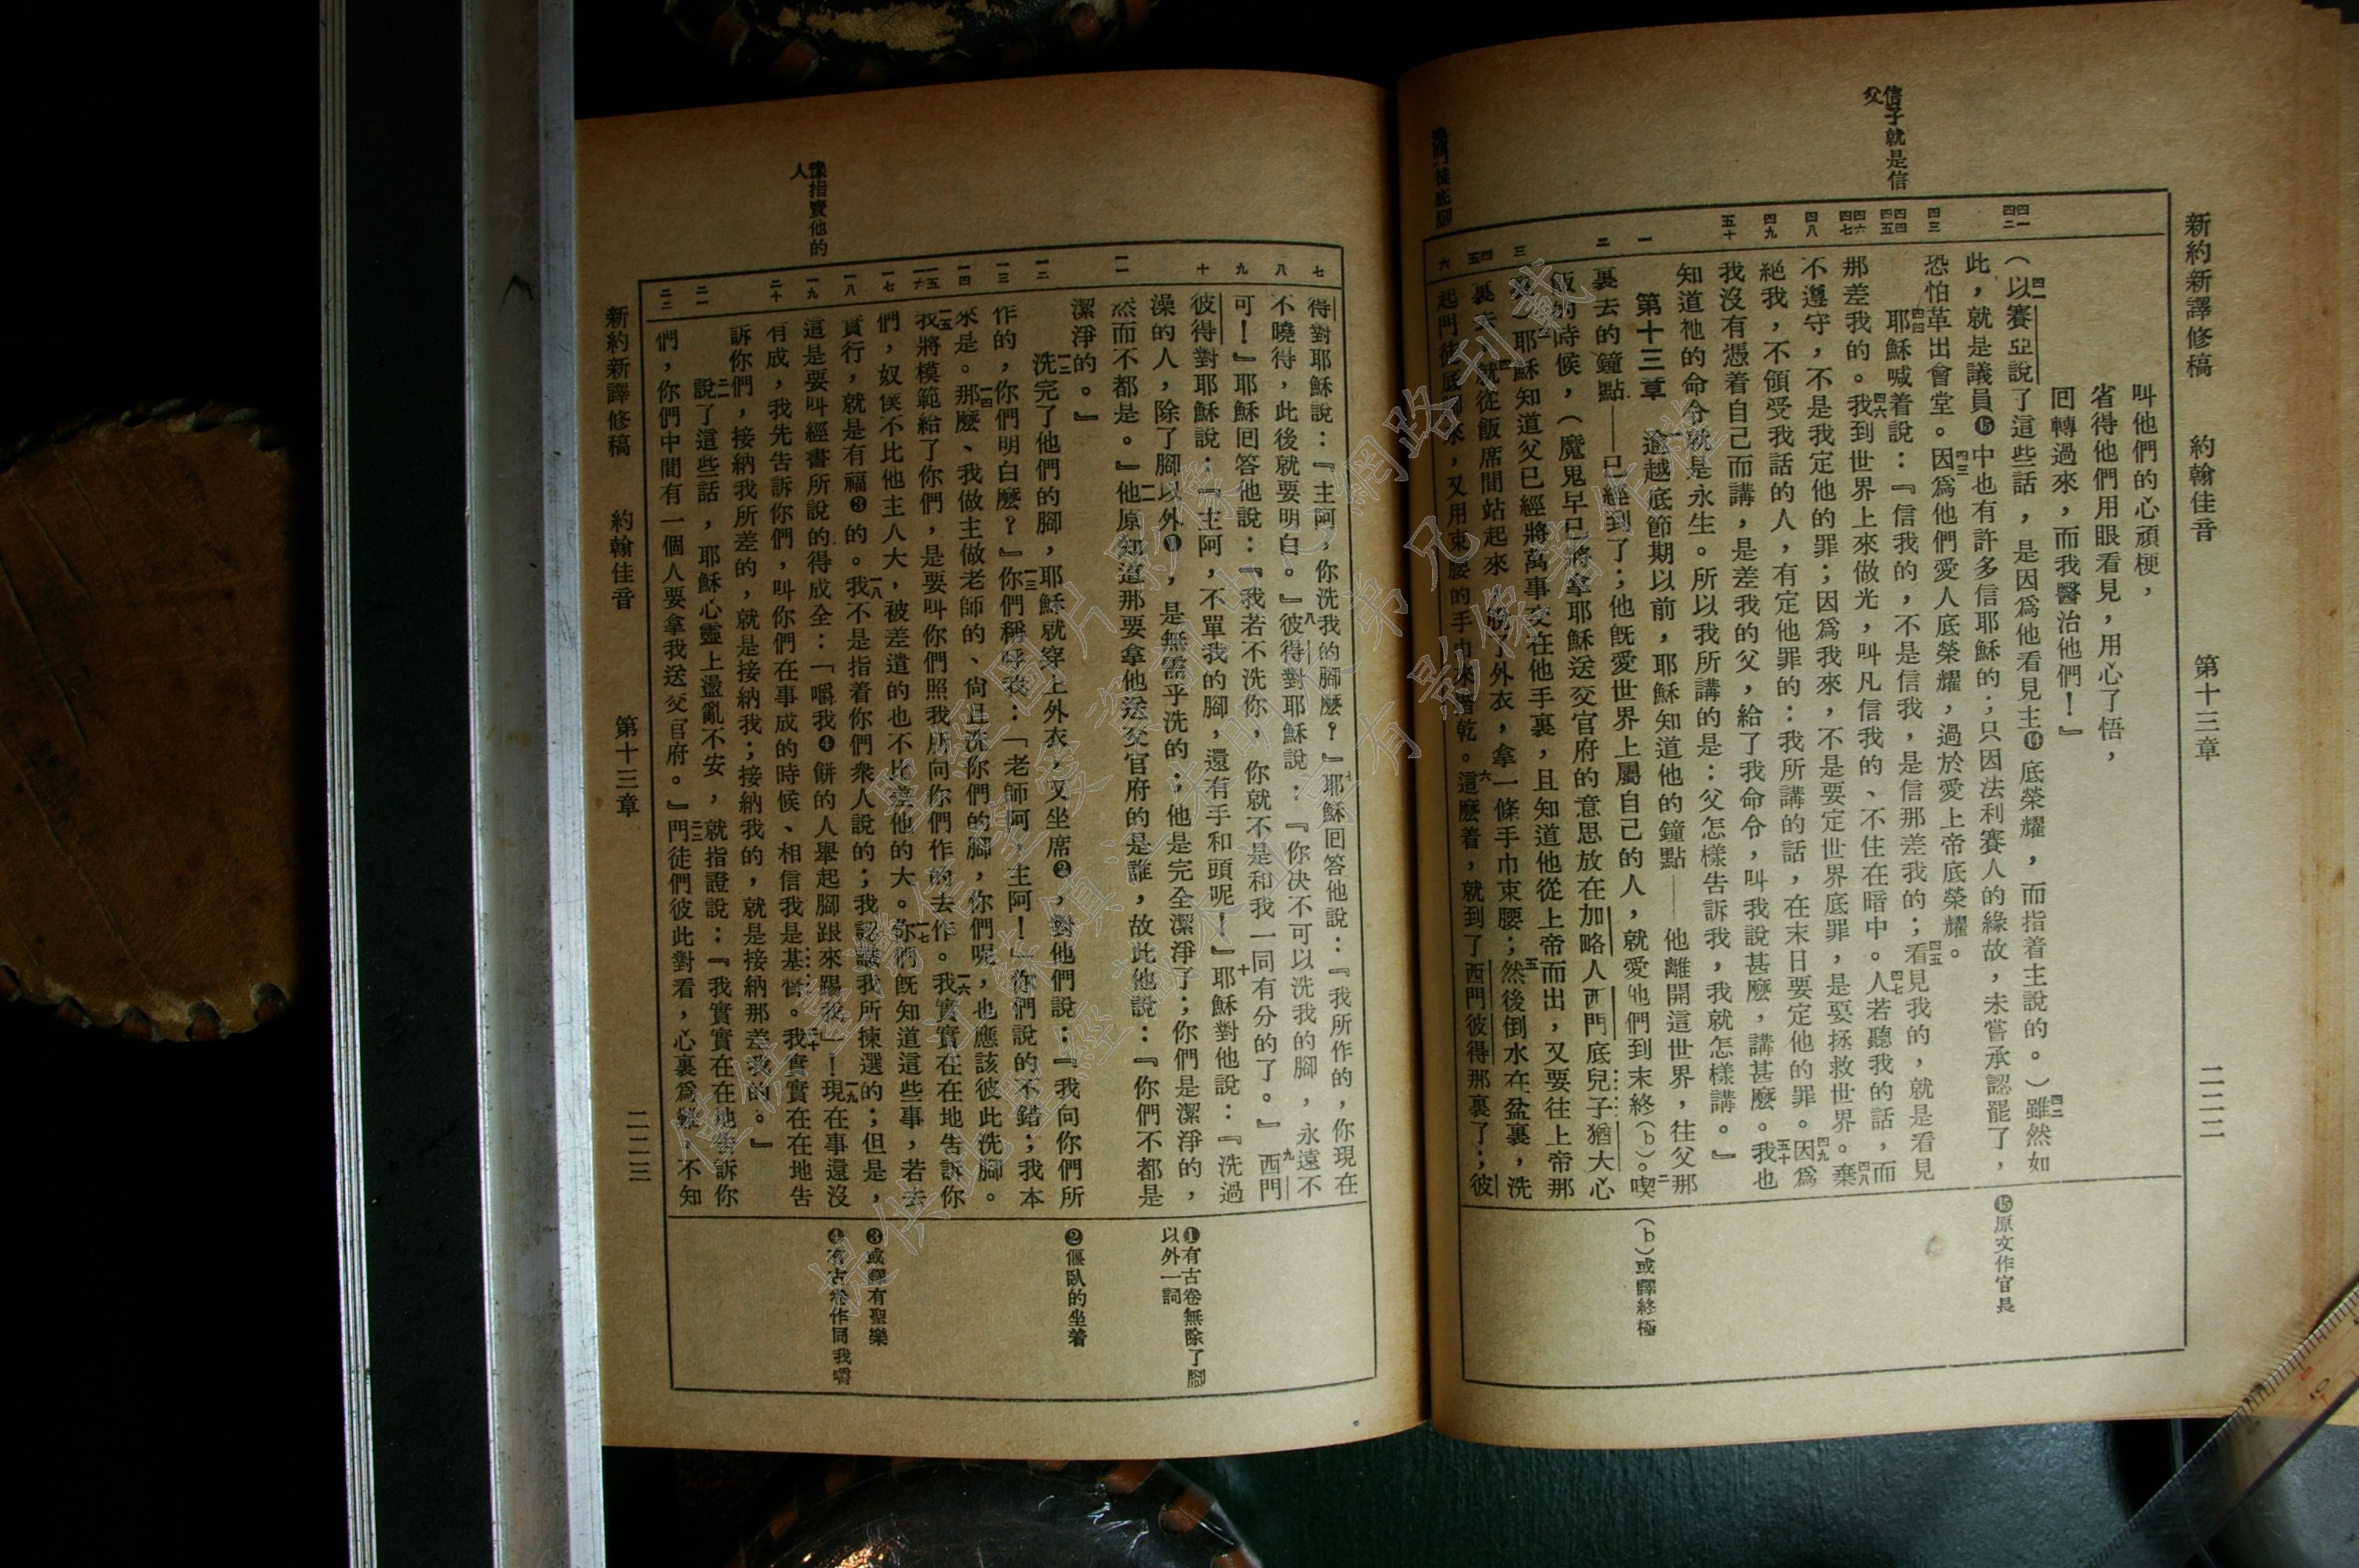 新約新譯修稿　約翰佳音　第十三章　二二二
信子就是信
父
叫他們的心頑梗，
省得他們用眼看見，用心了悟，
回轉過來，而我醫治他們！』
四一（以賽亞說了這些話，是因為他看見主⓮底榮耀，而指着主說的。）四二雖然如
此，就是議員⓯中也有許多信耶穌的；只因法利賽人的緣故，未嘗承認罷了，
恐怕革出會堂。四三因為他們愛人底榮耀，過於愛上帝底榮耀。
四四耶穌喊着說：『信我的，不是信我，是信那差我的；四五看見我的，就是看見
那差我的。四六我到世界上來做光，叫凡信我的、不住在暗中。四七人若聽我的話，而
不遵守，不是我定他的罪；因為我來，不是要定世界底罪，是要拯救世界。四八棄
絕我，不領受我話的人，有定他罪的：我所講的話，在末日要定他的罪。四九因為
我沒有憑着自己而講，是差我的父，給了我命令，叫我說甚麼，講甚麼。五十我也
知道祂的命令就是永生。所以我所講的是：父怎樣告訴我，我就怎樣講。』
第十三章　一逾越底節期以前，耶穌知道他的鐘點——他離開這世界，往父那
裏去的鐘點——已經到了；他旣愛世界上屬自己的人，就愛他們到末終（b）。二喫
飯的時候，（魔鬼早已將拿耶穌送交官府的意思放在加略人西門底兒子猶大心
耶穌知道父已經將萬事交在他手裏，且知道他從上帝而出，又要往上帝那
裏去，四就從飯席間站起來，脫了外衣，拿一條手巾束腰；五然後倒水在盆裏，洗
起門徒底腳來，又用束腰的手巾來擦乾。六這麼着，就到了西門彼得那裏了；彼
⓯原文作官長
（b）或譯終極
得對耶穌說：『主阿，你洗我的腳麼？』七耶穌回答他說：『我所作的，你現在
不曉得，此後就要明白。』八彼得對耶穌說：『你決不可以洗我的腳，永遠不
可！』耶穌回答他說：『我若不洗你，你就不是和我一同有分的了。』九西門
彼得對耶穌說：『主阿，不單我的腳，還有手和頭呢！』十耶穌對他說：『洗過
澡的人，除了腳以外❶，是無需乎洗的；他是完全潔淨了；你們是潔淨的，
然而不都是。』一一他原知道那要拿他送交官府的是誰，故此他說：『你們不都是
潔淨的。』
一二洗完了他們的腳，耶穌就穿上外衣，又坐席❷，對他們說：『我向你們所
作的，你們明白麼？一三你們稱呼我：「老師阿，主阿！」你們說的不錯；我本
來是。一四那麼、我做主做老師的、尙且洗你們的腳，你們呢，也應該彼此洗腳。
一五我將模範給了你們，是要叫你們照我所向你們作的去作。一六我實實在在地告訴你
們，奴僕不比他主人大，被差遣的也不比差他的大。一七你們旣知道這些事，若去
實行，就是有福❸的。一八我不是指着你們衆人說的；我認識我所揀選的；但是，
這是要叫經書所說的得成全：「嚼我❹餅的人舉起腳跟來踢我」！一九現在事還沒
有成，我先告訴你們，叫你們在事成的時候、相信我是基督。二十我實實在在地告
訴你們，接納我所差的，就是接納我；接納我的，就是接納那差我的。』
二一說了這些話，耶穌心靈上盪亂不安，就指證說：『我實實在在地告訴你
們，你們中間有一個人要拿我送交官府。』二二門徒們彼此對看，心裏爲難，不知
❶有古卷無除了腳
以外一詞
❷偃臥的坐着
❸或譯有聖樂
❹有古卷作同我嚼
新約新譯修稿　約翰佳音　第十三章　二二三